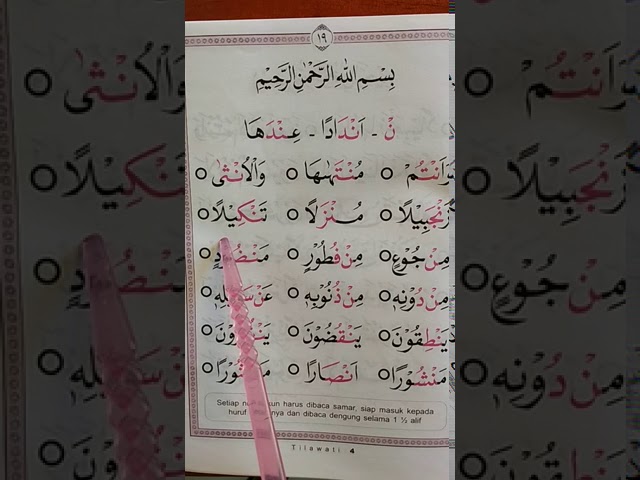 ١٩
بِسْمِ اللّٰهِ الرَّحْمٰنِ الرَّحِيْمِ
نْ - اَنْدَادًا - عِنْدَهَا
وَاَنْتُمْ ○ مُنْتَهٰىهَا ○ وَالْاُنْثٰى ○
زَنْجَبِيْلًا ○ مُنْزَلًا ○ تَنْكِيْلًا ○
مِنْ جُوْعٍ ○ مِنْ فُطُوْرٍ ○ مَنْضُوْدٍ ○
مِنْ دُوْنِهٖ ○ مِنْ ذُنُوْبِهٖ ○ عَنْ سَبِيْلِهٖ ○
يَنْطِقُوْنَ ○ يَنْقُضُوْنَ ○
مَنْشُوْرًا ○ اَنْصَارًا ○
Setiap harus dibaca samar, siap masuk kepada
huruf dan dibaca dengung selama 1 ½ alif
Tilawati 4